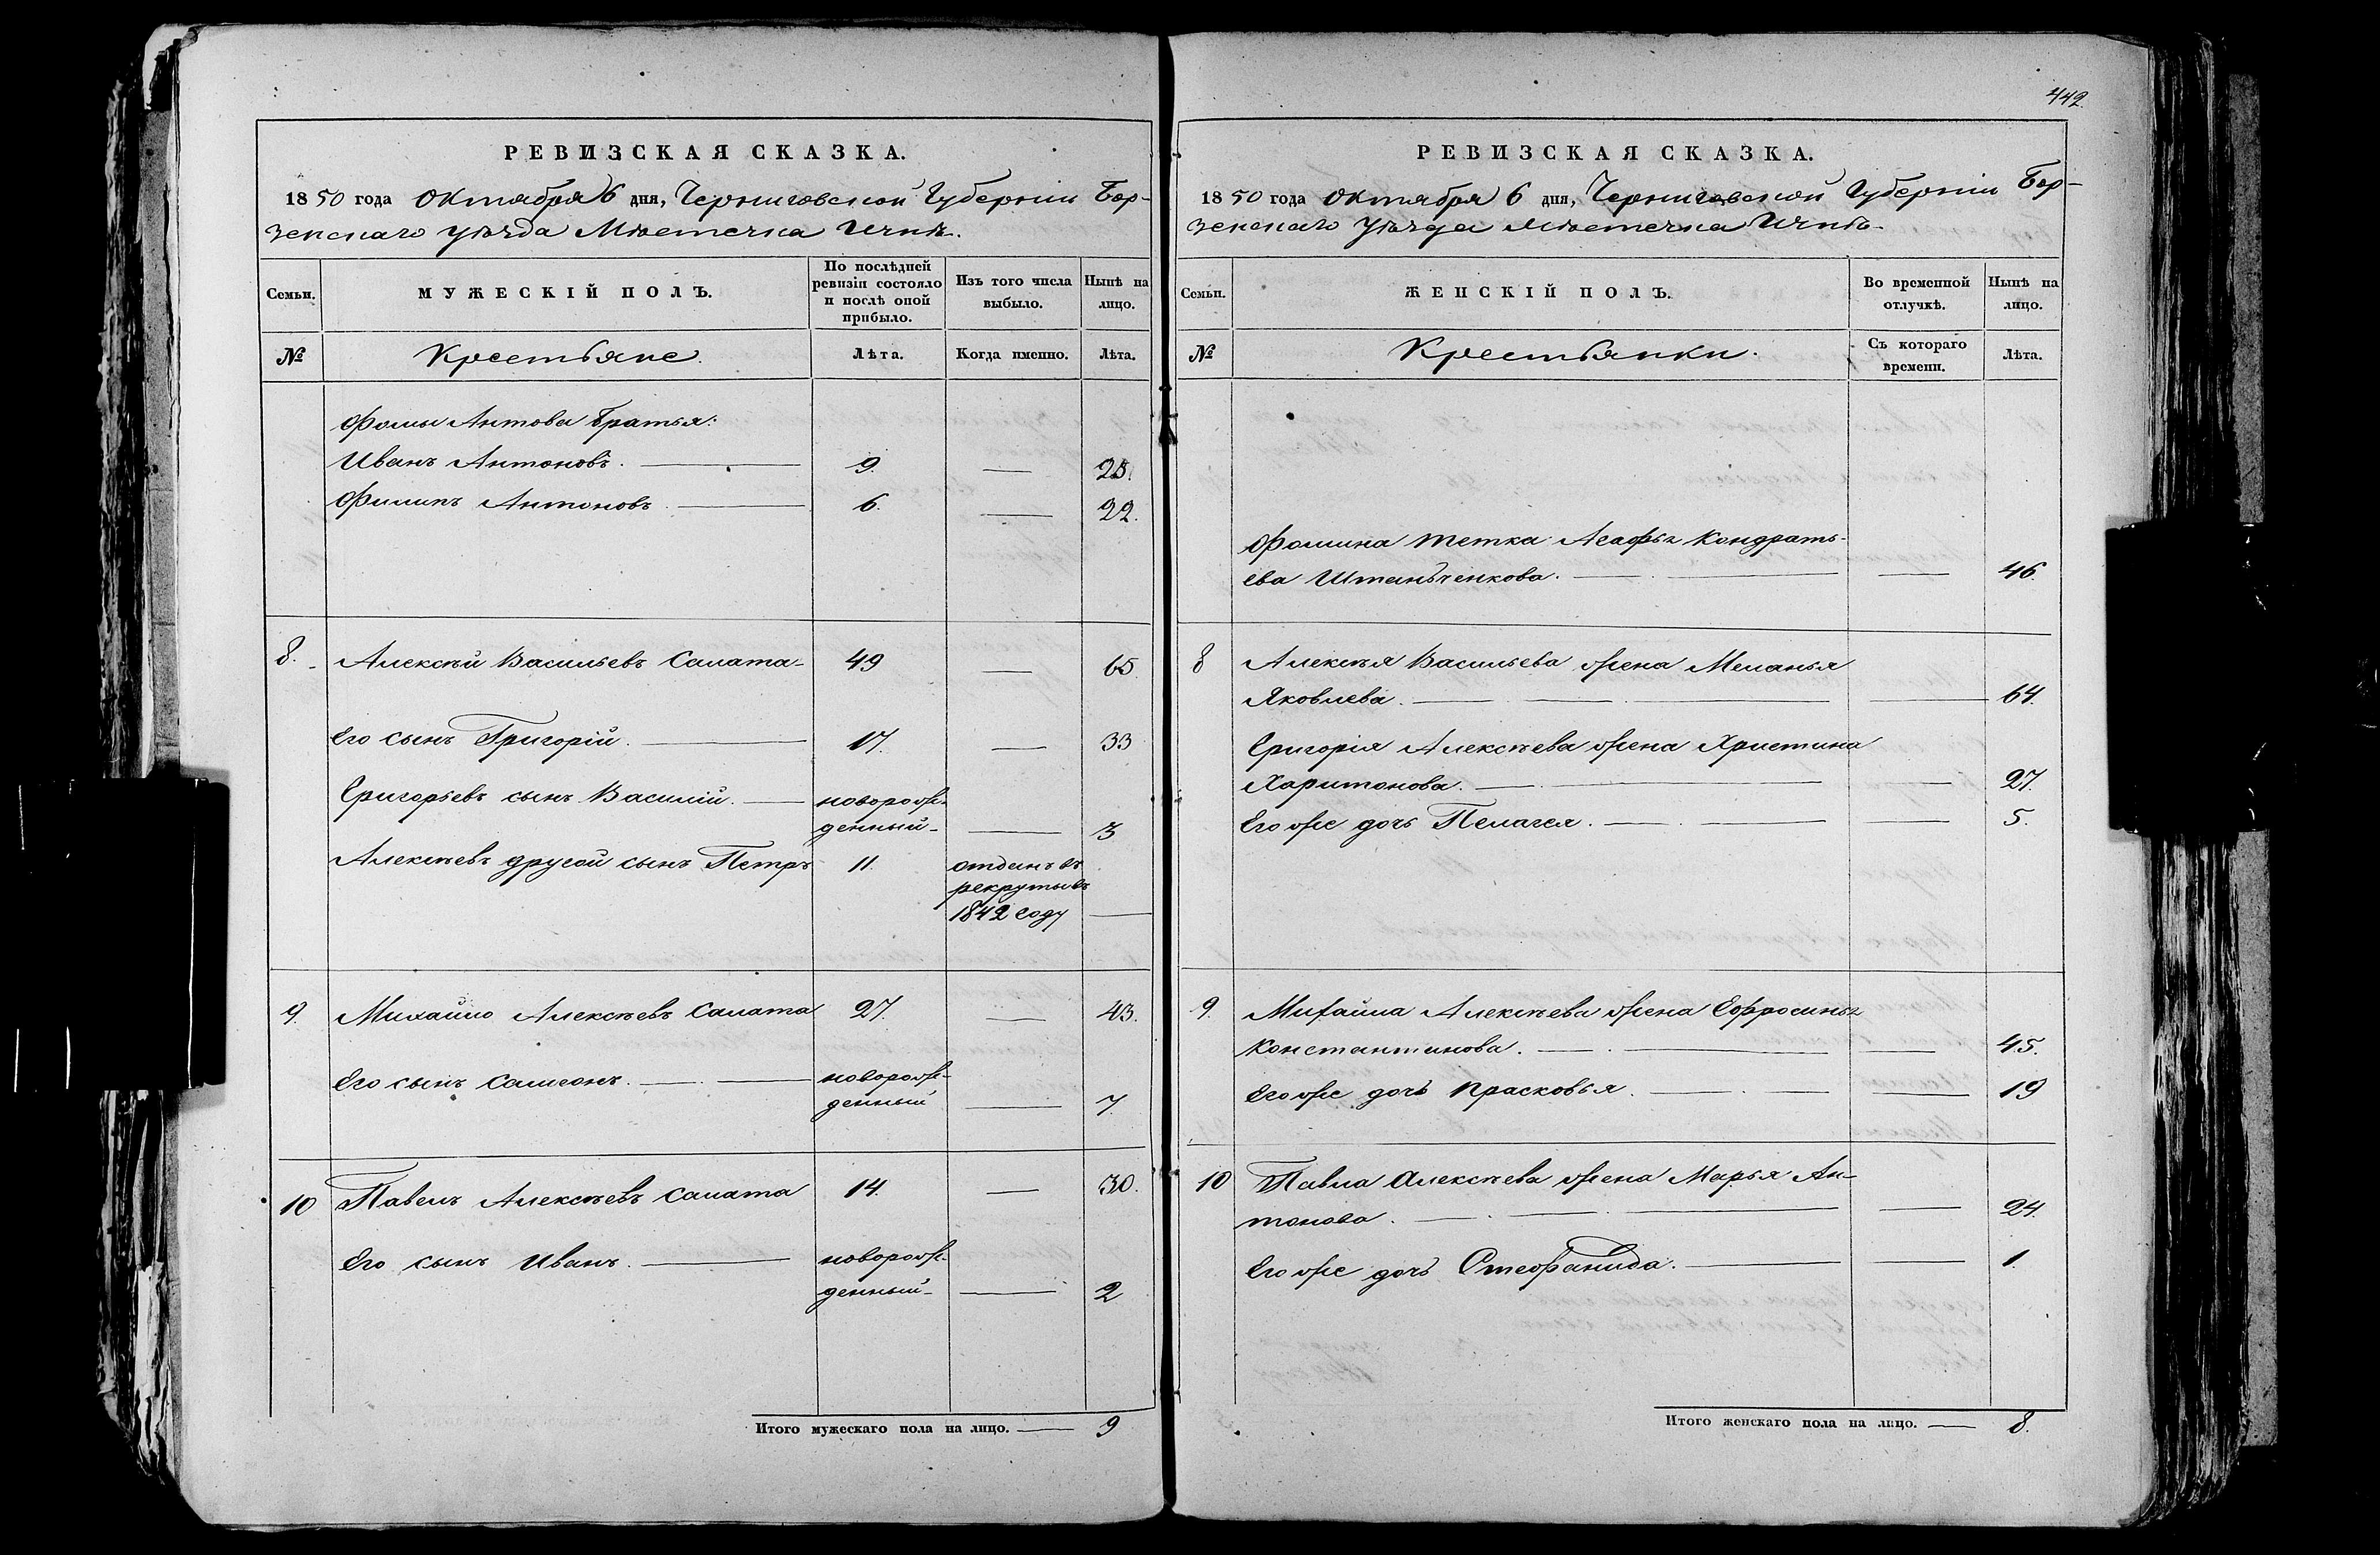 РЕВИЗСКАЯ СКАЗКА.
1850 года Октября 6 дня, Черниговской Губерніи Бор-
зенскаго уѣзда Мѣстечка Ични.
Семьи.
МУЖЕСКІЙ ПОЛЪ.
По послѣдней ревизіи состояло и послѣ оной прибыло.
Изъ того числа выбыло.
Нынѣ на лицо.
№
Крестьяне.
Лѣта.
Когда именно.
Лѣта.
Фомы Антова братья:
Иванъ Антоновъ. 9. — 25.
Филипъ Антоновъ 6. — 22.
8. Алексѣй Васильевъ Салата 49 — 65.
Его сынъ Григорій. 17. — 33
Григорьевъ сынъ Василій. новорож-
денный — 3
Алексѣевъ другой сынъ Петръ 11. отданъ въ
рекруты въ
1842 году —
9. Михайло Алексѣевъ Салата 27. — 43.
Его сынъ Самсонъ. новорож-
денный — 7.
10 Павелъ Алексѣевъ Салата 14. — 30.
Его сынъ Иванъ. новорож-
денный — 2
Итого мужескаго пола на лицо. — 9
442.
РЕВИЗСКАЯ СКАЗКА.
1850 года Октября 6 дня, Черниговской Губерніи Бор-
зенскаго Уѣзда Мѣстечка Ични.
Семьи.
ЖЕНСКІЙ ПОЛЪ.
Во временной отлучкѣ.
Нынѣ на лицо.
№
Крестьянки.
Съ котораго времени.
Лѣта.
Фомина тетка Агафья Кондрать-
ева Штаньченкова. — 46.
8 Алексѣя Васильева жена Меланья
Яковлева. — 64.
Григорія Алексѣева жена Христина
Харитонова. — 27.
Его же дочь Пелагея. — 5.
9. Михайла Алексѣева жена Евфросинья
Константинова. — 45.
Его же дочь Прасковья. — 19
10 Павла Алексѣева жена Марья Ан-
тонова. — 24.
Его же дочь Стефанида. — 1.
Итого женскаго пола на лицо. — 8.